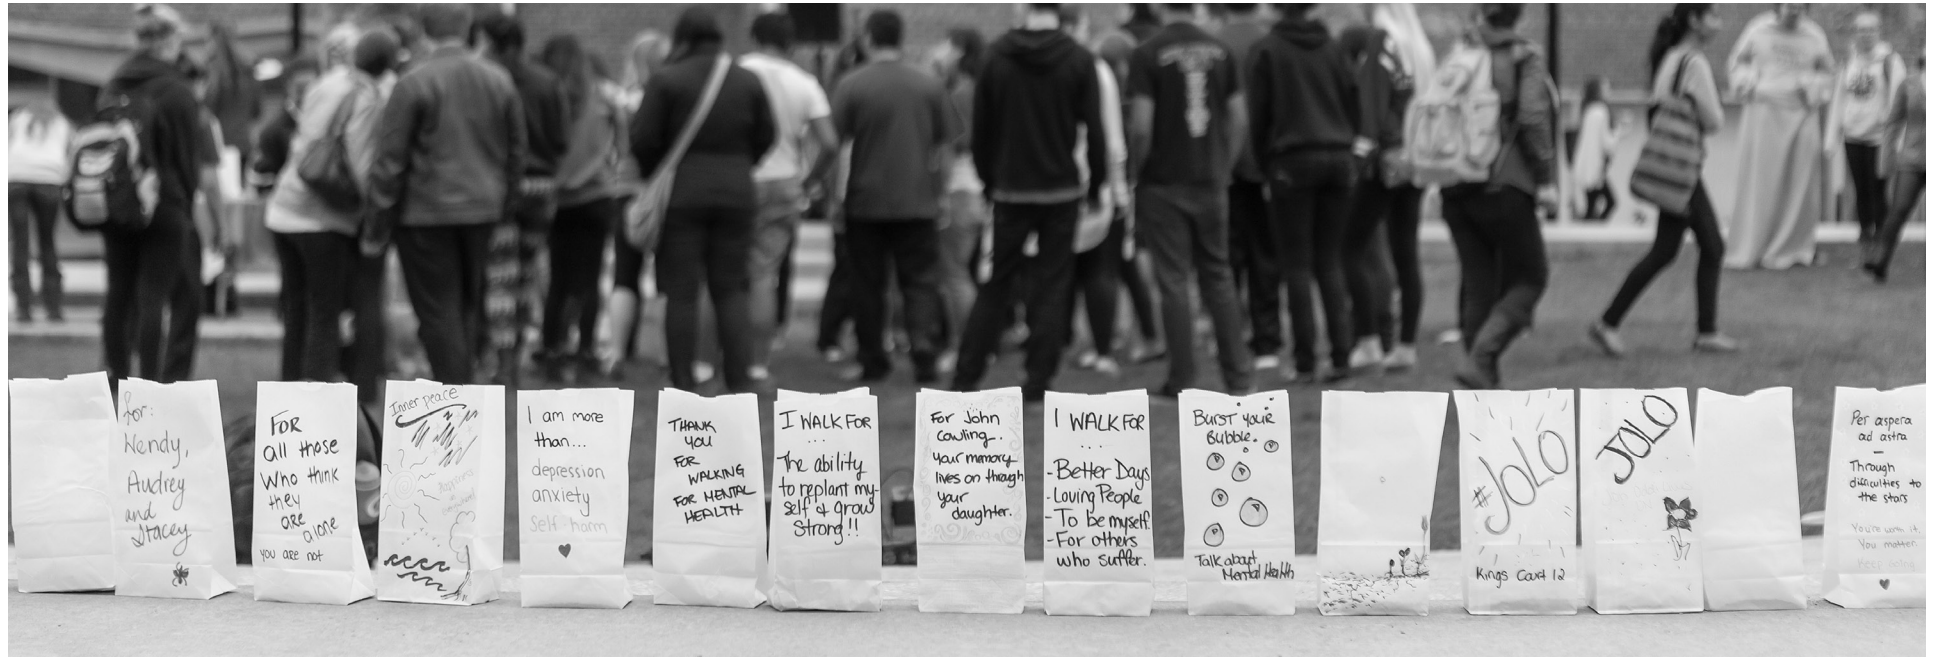 for:
Wendy,
Audrey
and
Stacey
FOR
all those
who think
they
are
alone
you are not
Inner peace
I am more
than...
depression
anxiety
self harm
THANK
YOU
FOR
WALKING
FOR MENTAL
HEALTH
I WALK FOR
...
The ability
to replant my-
self & grow
Strong!!
For John
Cowling.
your memory
lives on through
your
daughter.
I WALK FOR
...
-Better Days
-Loving People
-To be myself
-For others
who suffer.
BURST your
Bubble.
Talk about
Mental Health
#JOLO
Kings Court 12
JOLO
Per aspera
ad astra
–
Through
difficulties to
the stars
You're worth it.
You matter.
Keep going.